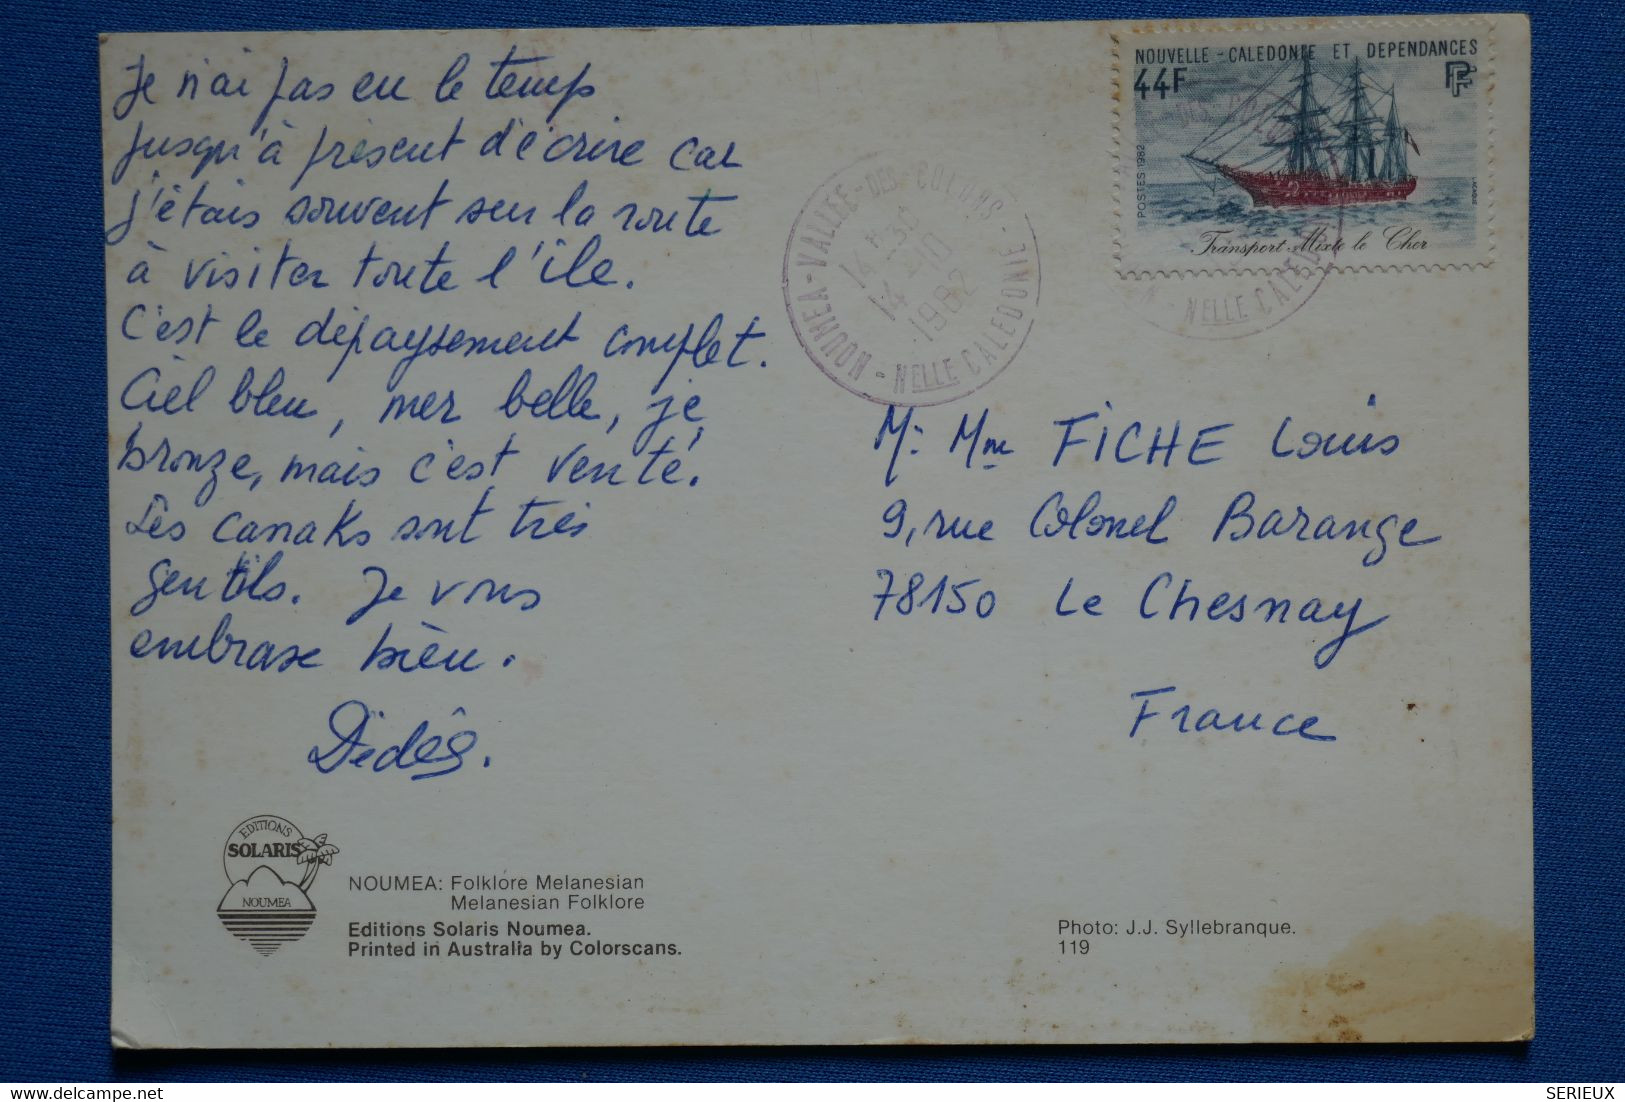 Je n'ai pas eu le temps
jusqu'à présent d'écrire car
j'étais souvent sur la route
à visiter toute l'île.
C'est le dépaysement complet.
Ciel bleu, mer belle, je
bronze, mais c'est venté.
Les canaks sont très
gentils. Je vous
embrasse bien.
Dédée.
EDITIONS
SOLARIS
NOUMEA
NOUMEA: Folklore Melanesian
Melanesian Folklore
Editions Solaris Noumea.
Printed in Australia by Colorscans.
NOUVELLE-CALEDONIE ET DEPENDANCES
44F
RF
POSTES 1982
LACAQUE
Transport-Mixte le Cher
NOUMEA-VALLEE-DES-COLONS-
NELLE CALEDONIE
14 H 30
14-10
1982
NELLE CALEDONIE
M. Mme FICHE Louis
9, rue Colonel Barange
78150 Le Chesnay
France
Photo: J.J. Syllebranque.
119
SERIEUX